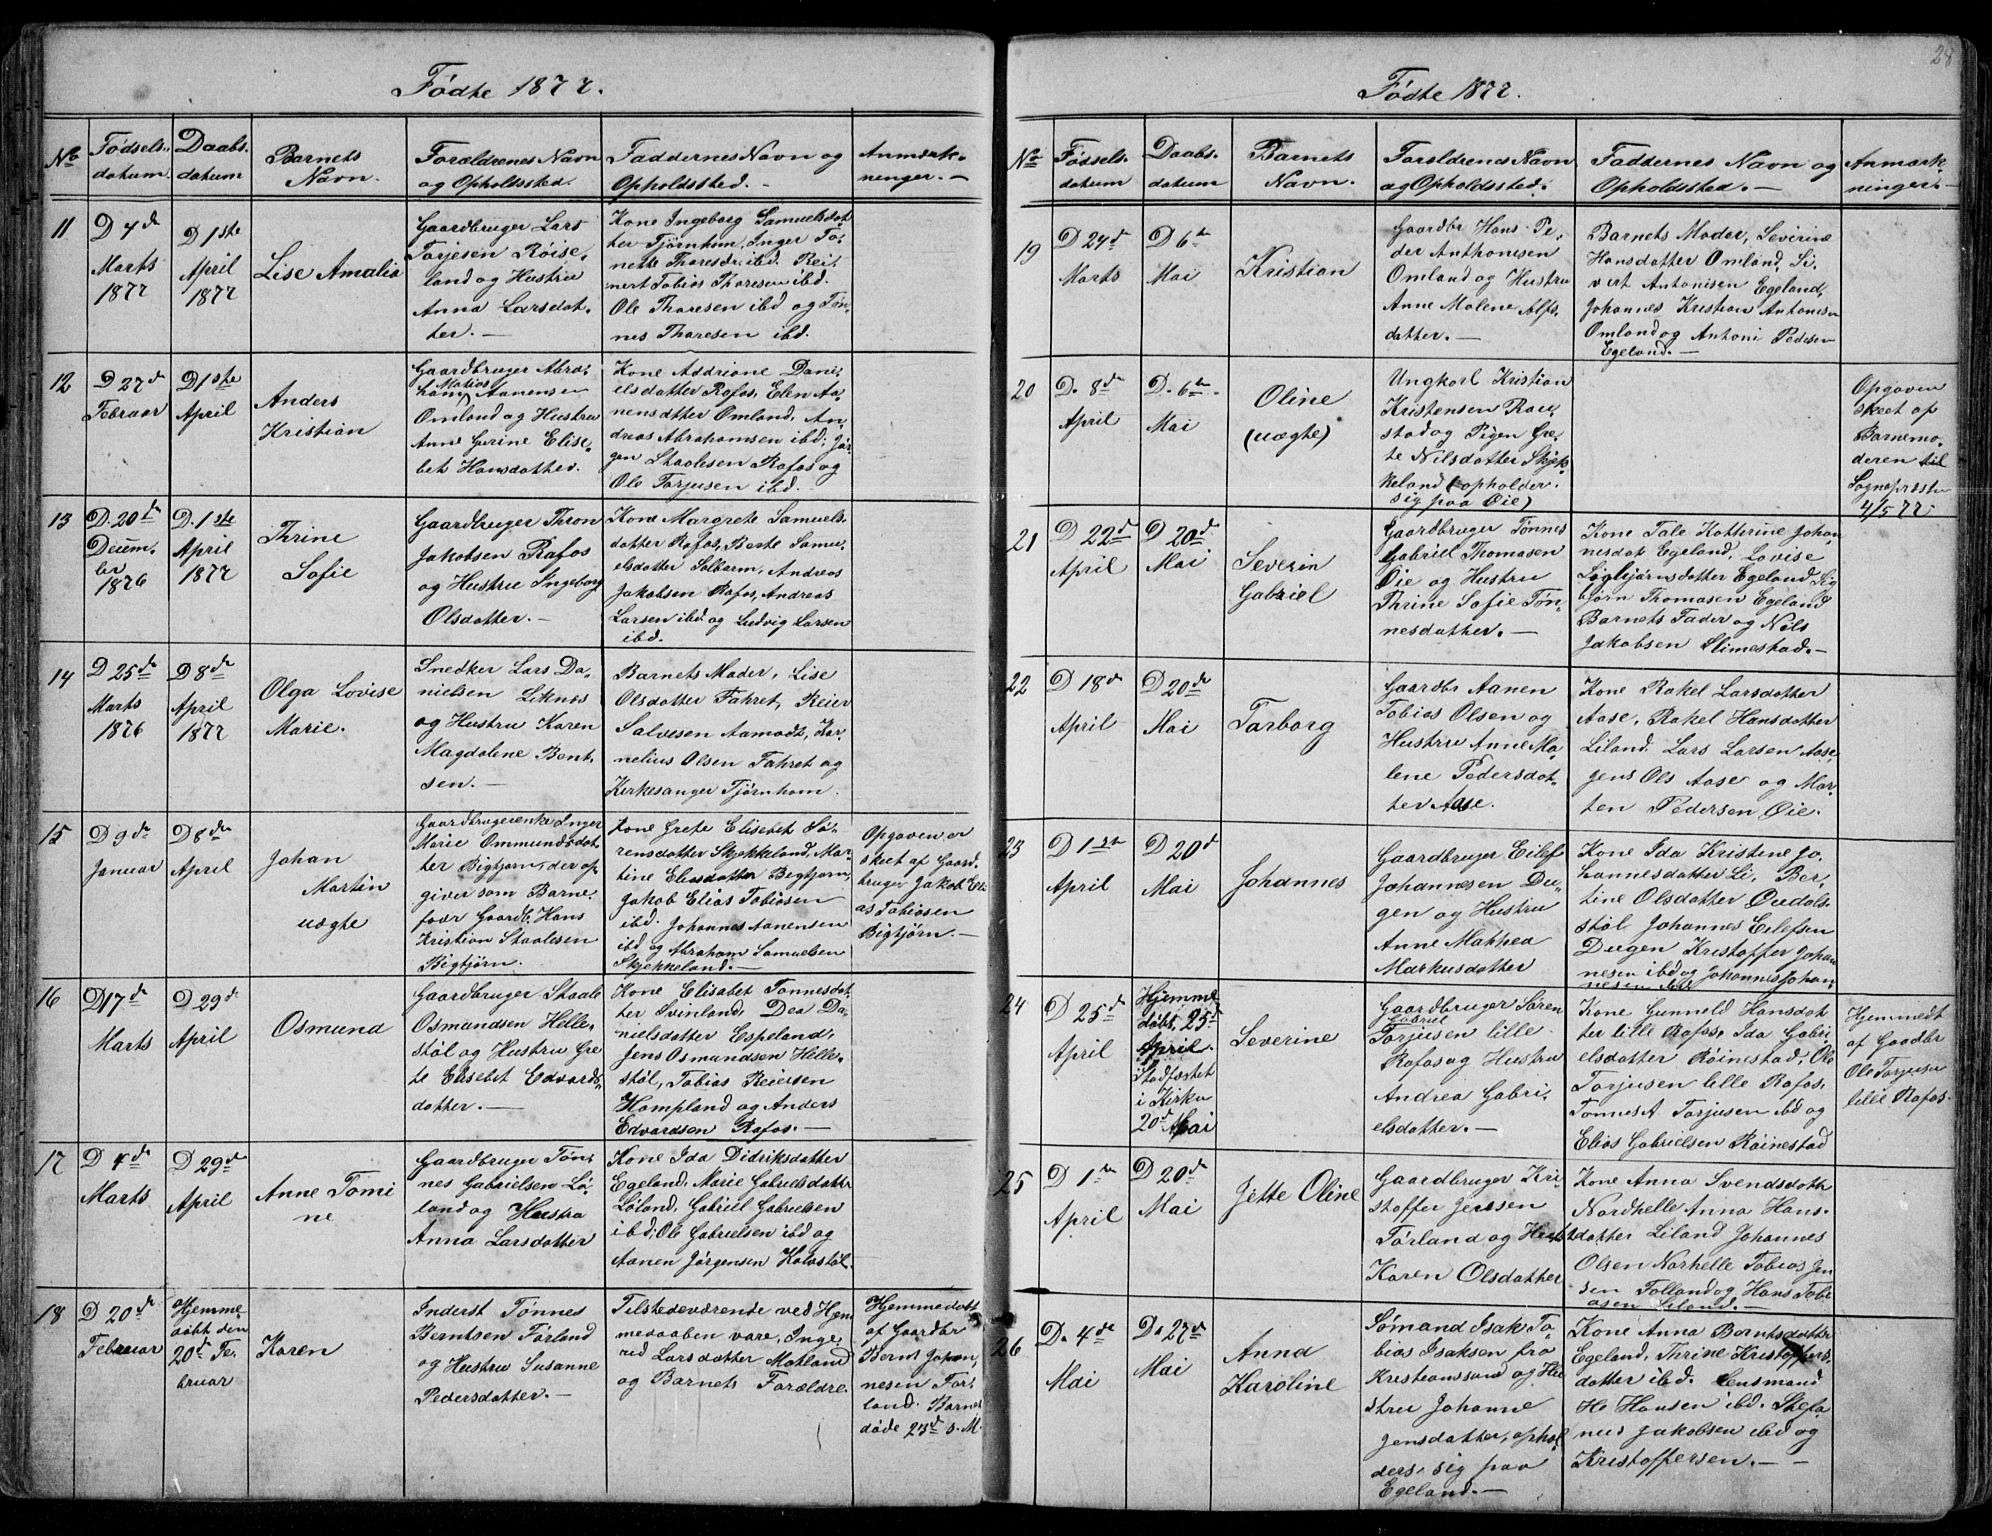 28
Fødte 1877.
No
Fødsels-
datum
Daabs-
datum
Barnets
Navn.
Forældrenes Navn
og Opholdssted.
Faddernes Navn og
Opholdssted. -
Anmærk-
ninger. -
11
D 4de
Marts
1877
D 1ste
April
1877
Lise Amalia
Gaardbruger Lars
Torjesen Røise-
land og Hustru
Anna Larsdat-
ter. -
Kone Ingeborg Samuelsdat
ter Tjørnhom, Inger To-
nette Tharesdr. ibd. Rei-
nert Tobias Tharesen ibd.
Ole Tharesen ibd og Tøn-
nes Tharesen ibd.
12
D 27de
Februar
D 1ste
April
Anders
Kristian
Gaardbruger Abra-
ham Matias Aanensen
Omland og Hustru
Anne Gurine Elise-
bet Hansdatter.
Kone Addrione Dani-
elsdatter Rafos, Elen Aa-
nensdatter Omland, An-
dreas Abrahamsen ibd; Jør-
gen Staalesen Rafos og
Ole Torjusen ibd.
13
D. 20de
Decem-
ber
1876
D. 1ste
April
1877
Thrine
Sofie
Gaardbruger Thron
Jakobsen Rafos
og Hustru Ingeborg
Olsdatter. -
Kone Margrete Samuels-
datter Rafos, Berte Samu-
elsdatter Solberm, Andreas
Jakobsen Rafos, Andreas
Larsen ibd og Ludvig Larsen
ibd.
14
D 25de
Marts
1876
D 8de
April
1877
Olga Lovise
Marie.
Snedker Lars Da-
nielsen Liknes
og Hustru Karen
Magdalene Bent-
sen. -
Barnets Moder, Lise
Olsdatter Fahret, Reier
Salvesen Aamodt, Kor-
nelius Olsen Fahret og
Kirkesanger Tjørnhom.
15
D 9de
Januar
D 8de
April
Johan
Martin
uægte
Gaardbrugerenke Inger
Marie Ommundsdat-
ter Bigtjørn, der op-
giver som Barne-
faer Gaardb. Hans
Kristian Staalesen
Bigtjørn.
Kone Grete Elisebet Sø-
rensdatter Skjekkeland, Mar-
tine Eliasdatter Bigtjørn,
Jakob Elias Tobiasen
ibd. Johannes Aanensen
ibd og Abraham Samuelsen
Skjekkeland. -
Opgaven er
skeet af Gaard-
bruger Jakob Eli-
as Tobiasen
Bigtjørn. -
16
D 17de
Marts
D 29de
April
Osmund
Gaardbruger Staale
Osmundsen Helle-
støl og Hustru Gre-
te Elisebet Edvards-
datter. -
Kone Elisabet Tønnesdat-
ter Svinland, Dea Da-
nielsdatter Espeland,
Jens Osmundsen Helle-
støl, Tobias Reiersen
Hompland og Anders
Edvardsen Rafos. -
17
D 4de
Marts
D 29de
April
Anne Tomi
ne
Gaardbruger Tøn-
nes Gabrielsen Lø-
land og Hustru
Anna Larsdatter
Kone Ida Didriksdatter
Egeland, Marie Gabrielsdatter
Løland, Gabriel Gabrielsen
ibd; Ole Gabrielsen ibd og
Aanen Jørgensen Kalvstøl.
18
D 20de
Februar
Hjemme
døbt den
20de Fe-
bruar
Karen
Inderst Tønnes
Berntsen Førland
og Hustru Susanne
Pedersdatter. -
Tilstedeværende ved Hjem
medaaben vare, Inge
rid Larsdatter Motland
og Barnets Forældre.
Hjemmedøbt
af Gaardbr
Bernt Johan-
nesen Før-
land. Barnet
døde 23de s. M.
Fødte 1877.
No
Fødsels-
datum
Daabs-
datum
Barnets
Navn.
Forældrenes Navn
og Opholdssted.
Faddernes Navn og
Opholdssted. -
Anmærk-
ninger. -
19
D 24de
Marts
D 6te
Mai
Kristian
Gaardbr Hans Pe-
der Anthonisen
Omland og Hustru
Anne Malene Alfs-
datter. -
Barnets Moder, Severine
Hansdatter Omland, Si-
vert Antonisen Egeland,
Johannes Kristian Antonisen
Omland og Antoni Pedersen
Egeland. -
20
D. 8de
April
D. 6te
Mai
Oline
(uægte)
Ungkarl Kristian
Kristensen Rau-
stad og Pigen Gre-
te Nilsdatter Skjek-
keland (opholder
sig paa Øie)
Opgaven
skeet af
Barnemo-
deren til
Sognepresten
4/5 77.
21
D 22de
April
D 20de
Mai
Severin
Gabriel
Gaardbruger Tønnes
Gabriel Thomasen
Øie og Hustru
Thrine Sofie Tøn-
nesdatter. -
Kone Tale Kathrine Johan
nesdat Egeland, Lovise
Sigbjørnsdatter Egeland Sig
bjørn Thomasen Egeland
Barnets Fader og Nils
Jakobsen Slimestad. -
22
D 18de
April
D 20de
Mai
Tarborg
Gaardbr Aanen
Tobias Olsen og
Hustru Anne Ma-
lene Pedersdat-
ter Aase.
Kone Rakel Larsdatter
Aase, Rakel Hansdatter
Liland. Lars Larsen Aase,
Jens Ols Aase og Mor-
ten Pedersen Øie.
23
D 1ste
April
D 20de
Mai
Johannes
Gaardbruger Eilef
Johannesen Du-
gen og Hustru
Anne Mathea
Markusdatter
Kone Ida Kristine Jo-
hannesdatter Li, Ber-
tine Olsdatter Øvdals-
støl Johannes Eilefsen
Dugen Kristoffer Johan
nesen ibd og Johannes Johan
nesen ibd
24
D 25de
April
Hjemme
døbt 25de
April.
Stadfæstet
i Kirken
20de Mai
Severine
Gaardbruger Søren
Gabriel
Torjusen lille
Rafos og Hustru
Andrea Gabri-
elsdatter. -
Kone Gunneld Hansdat
ter lille Rafos, Ida Gabri-
elsdatter Røinestad, Ole
Torjusen lille Rafos,
Tønnes A Torjusen ibd og
Elias Gabrielsen Røinestad
Hjemmedt
af Gaardbr
Ole Torjusen
lille Rafos.
25
D 1ste
April
D 20de
Mai
Jette Oline
Gaardbruger Kri-
stoffer Jensen
Førland og Hust
Karen Olsdatter
Kone Anna Svendsdatt
Nordhelle Anna Hans-
datter Liland Johannes
Olsen Norhelle Tobias Jen
sen Folland og Hans Tobi
asen Liland. -
26
D. 4de
Mai
D. 27de
Mai
Anna
Karoline
Sømand Isak To-
bias Isaksen fra
Kristianssand og Hu-
stru Johanne
Jensdatter, ophol-
ders sig paa
Egeland. -
Kone Anna Berntsdatter
Egeland, Thrine Kristoffers-
datter ibd. Lensmand
He Hansen ibd. Stefa-
nus Jakobsen ibd og
Kristoffersen. -